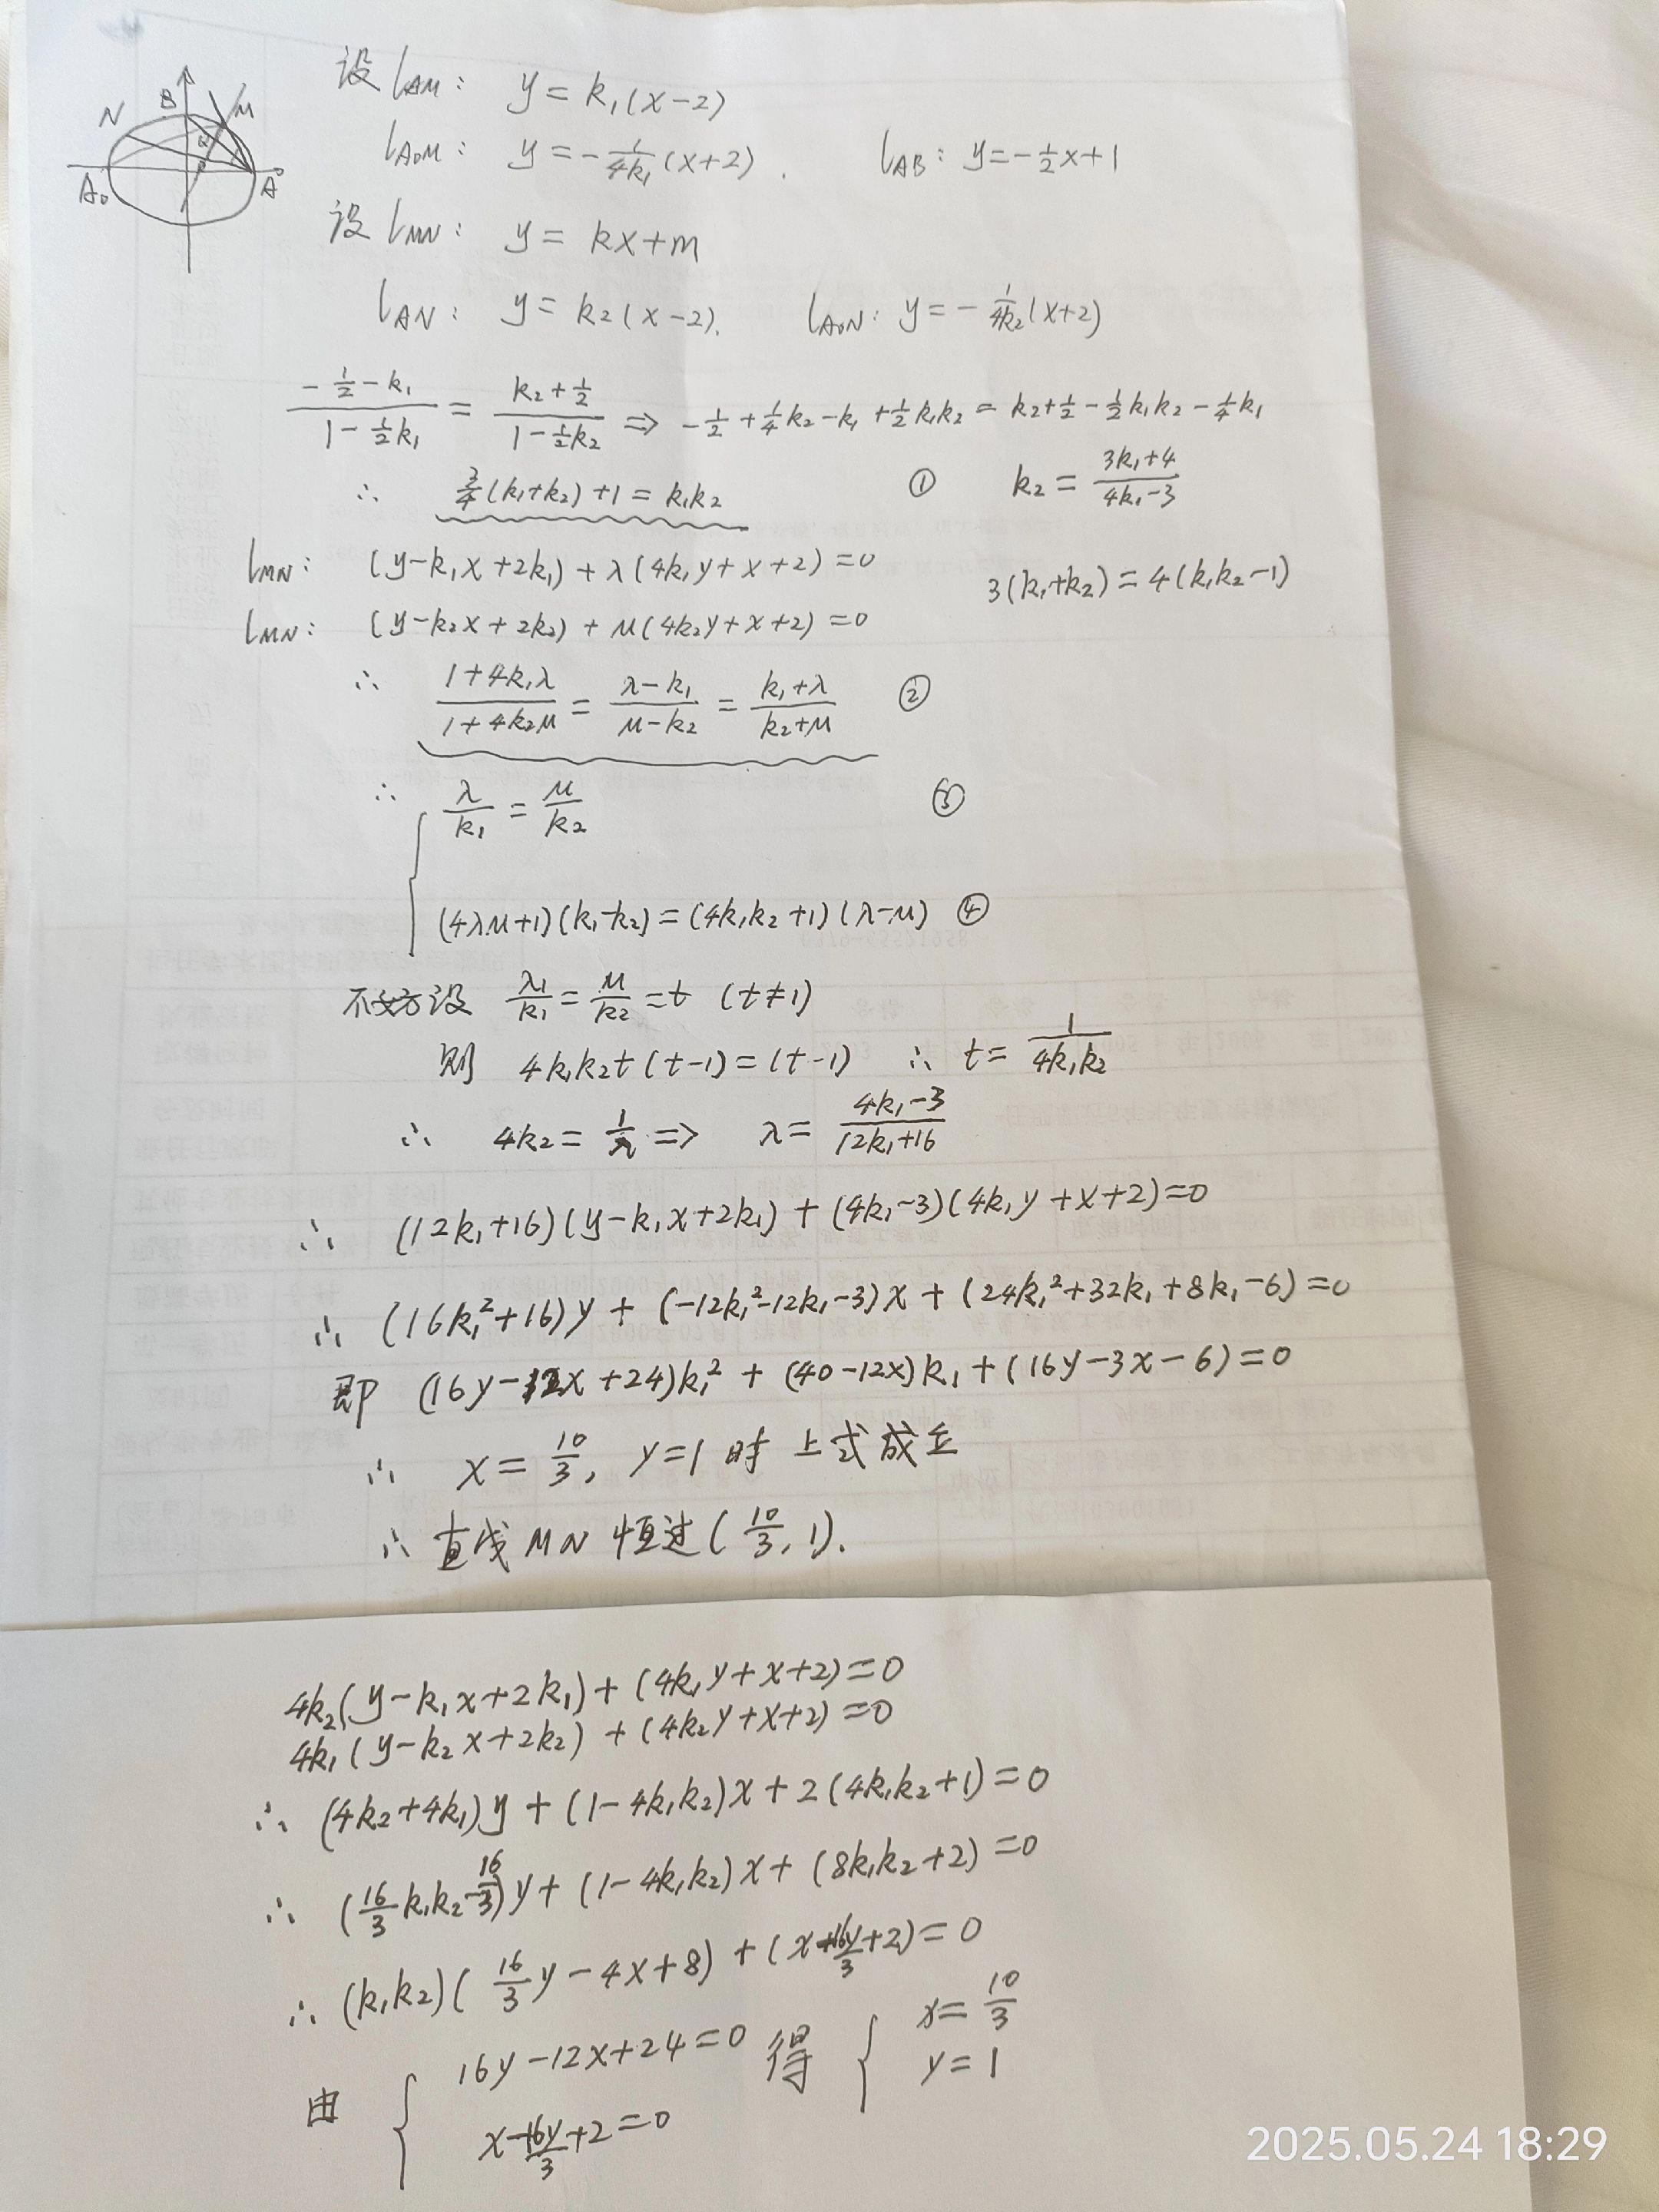 N B M
A₀ A
设 l_AM: y = k₁(x-2)
l_A₀M: y = -\frac{1}{4k₁}(x+2). l_AB: y = -\frac{1}{2}x+1
设 l_MN: y = kx+m
l_AN: y = k₂(x-2). l_A₀N: y = -\frac{1}{4k₂}(x+2)
\frac{-\frac{1}{2}-k₁}{1-\frac{1}{2}k₁} = \frac{k₂+\frac{1}{2}}{1-\frac{1}{2}k₂} ⇒ -\frac{1}{2}+\frac{1}{4}k₂-k₁+\frac{1}{2}k₁k₂ = k₂+\frac{1}{2}-\frac{1}{2}k₁k₂-\frac{1}{4}k₁
∴ \frac{3}{4}(k₁+k₂)+1 = k₁k₂ ① k₂ = \frac{3k₁+4}{4k₁-3}
l_MN: (y-k₁x+2k₁)+λ(4k₁y+x+2)=0
3(k₁+k₂)=4(k₁k₂-1)
l_MN: (y-k₂x+2k₂)+μ(4k₂y+x+2)=0
∴ \frac{1+4k₁λ}{1+4k₂μ} = \frac{λ-k₁}{μ-k₂} = \frac{k₁+λ}{k₂+μ} ②
∴ \frac{λ}{k₁} = \frac{μ}{k₂} ③
(4λμ+1)(k₁-k₂)=(4k₁k₂+1)(λ-μ) ④
不妨设 \frac{λ₁}{k₁}=\frac{μ}{k₂}=t (t≠1)
则 4k₁k₂t(t-1)=(t-1) ∴ t=\frac{1}{4k₁k₂}
∴ 4k₂=\frac{1}{λ} ⇒ λ=\frac{4k₁-3}{12k₁+16}
∴ (12k₁+16)(y-k₁x+2k₁)+(4k₁-3)(4k₁y+x+2)=0
∴ (16k₁²+16)y+(-12k₁²-12k₁-3)x+(24k₁²+32k₁+8k₁-6)=0
即 (16y-12x+24)k₁²+(40-12x)k₁+(16y-3x-6)=0
∴ x=\frac{10}{3}, y=1 时上式成立
∴ 直线MN恒过(\frac{10}{3},1).
4k₂(y-k₁x+2k₁)+(4k₁y+x+2)=0
4k₁(y-k₂x+2k₂)+(4k₂y+x+2)=0
∴ (4k₂+4k₁)y+(1-4k₁k₂)x+2(4k₁k₂+1)=0
∴ (\frac{16}{3}k₁k₂-\frac{16}{3})y+(1-4k₁k₂)x+(8k₁k₂+2)=0
∴ (k₁k₂)(\frac{16}{3}y-4x+8)+(x-\frac{16y}{3}+2)=0
由 { 16y-12x+24=0 得 { x=\frac{10}{3}
x-\frac{16y}{3}+2=0 y=1
2025.05.24 18:29